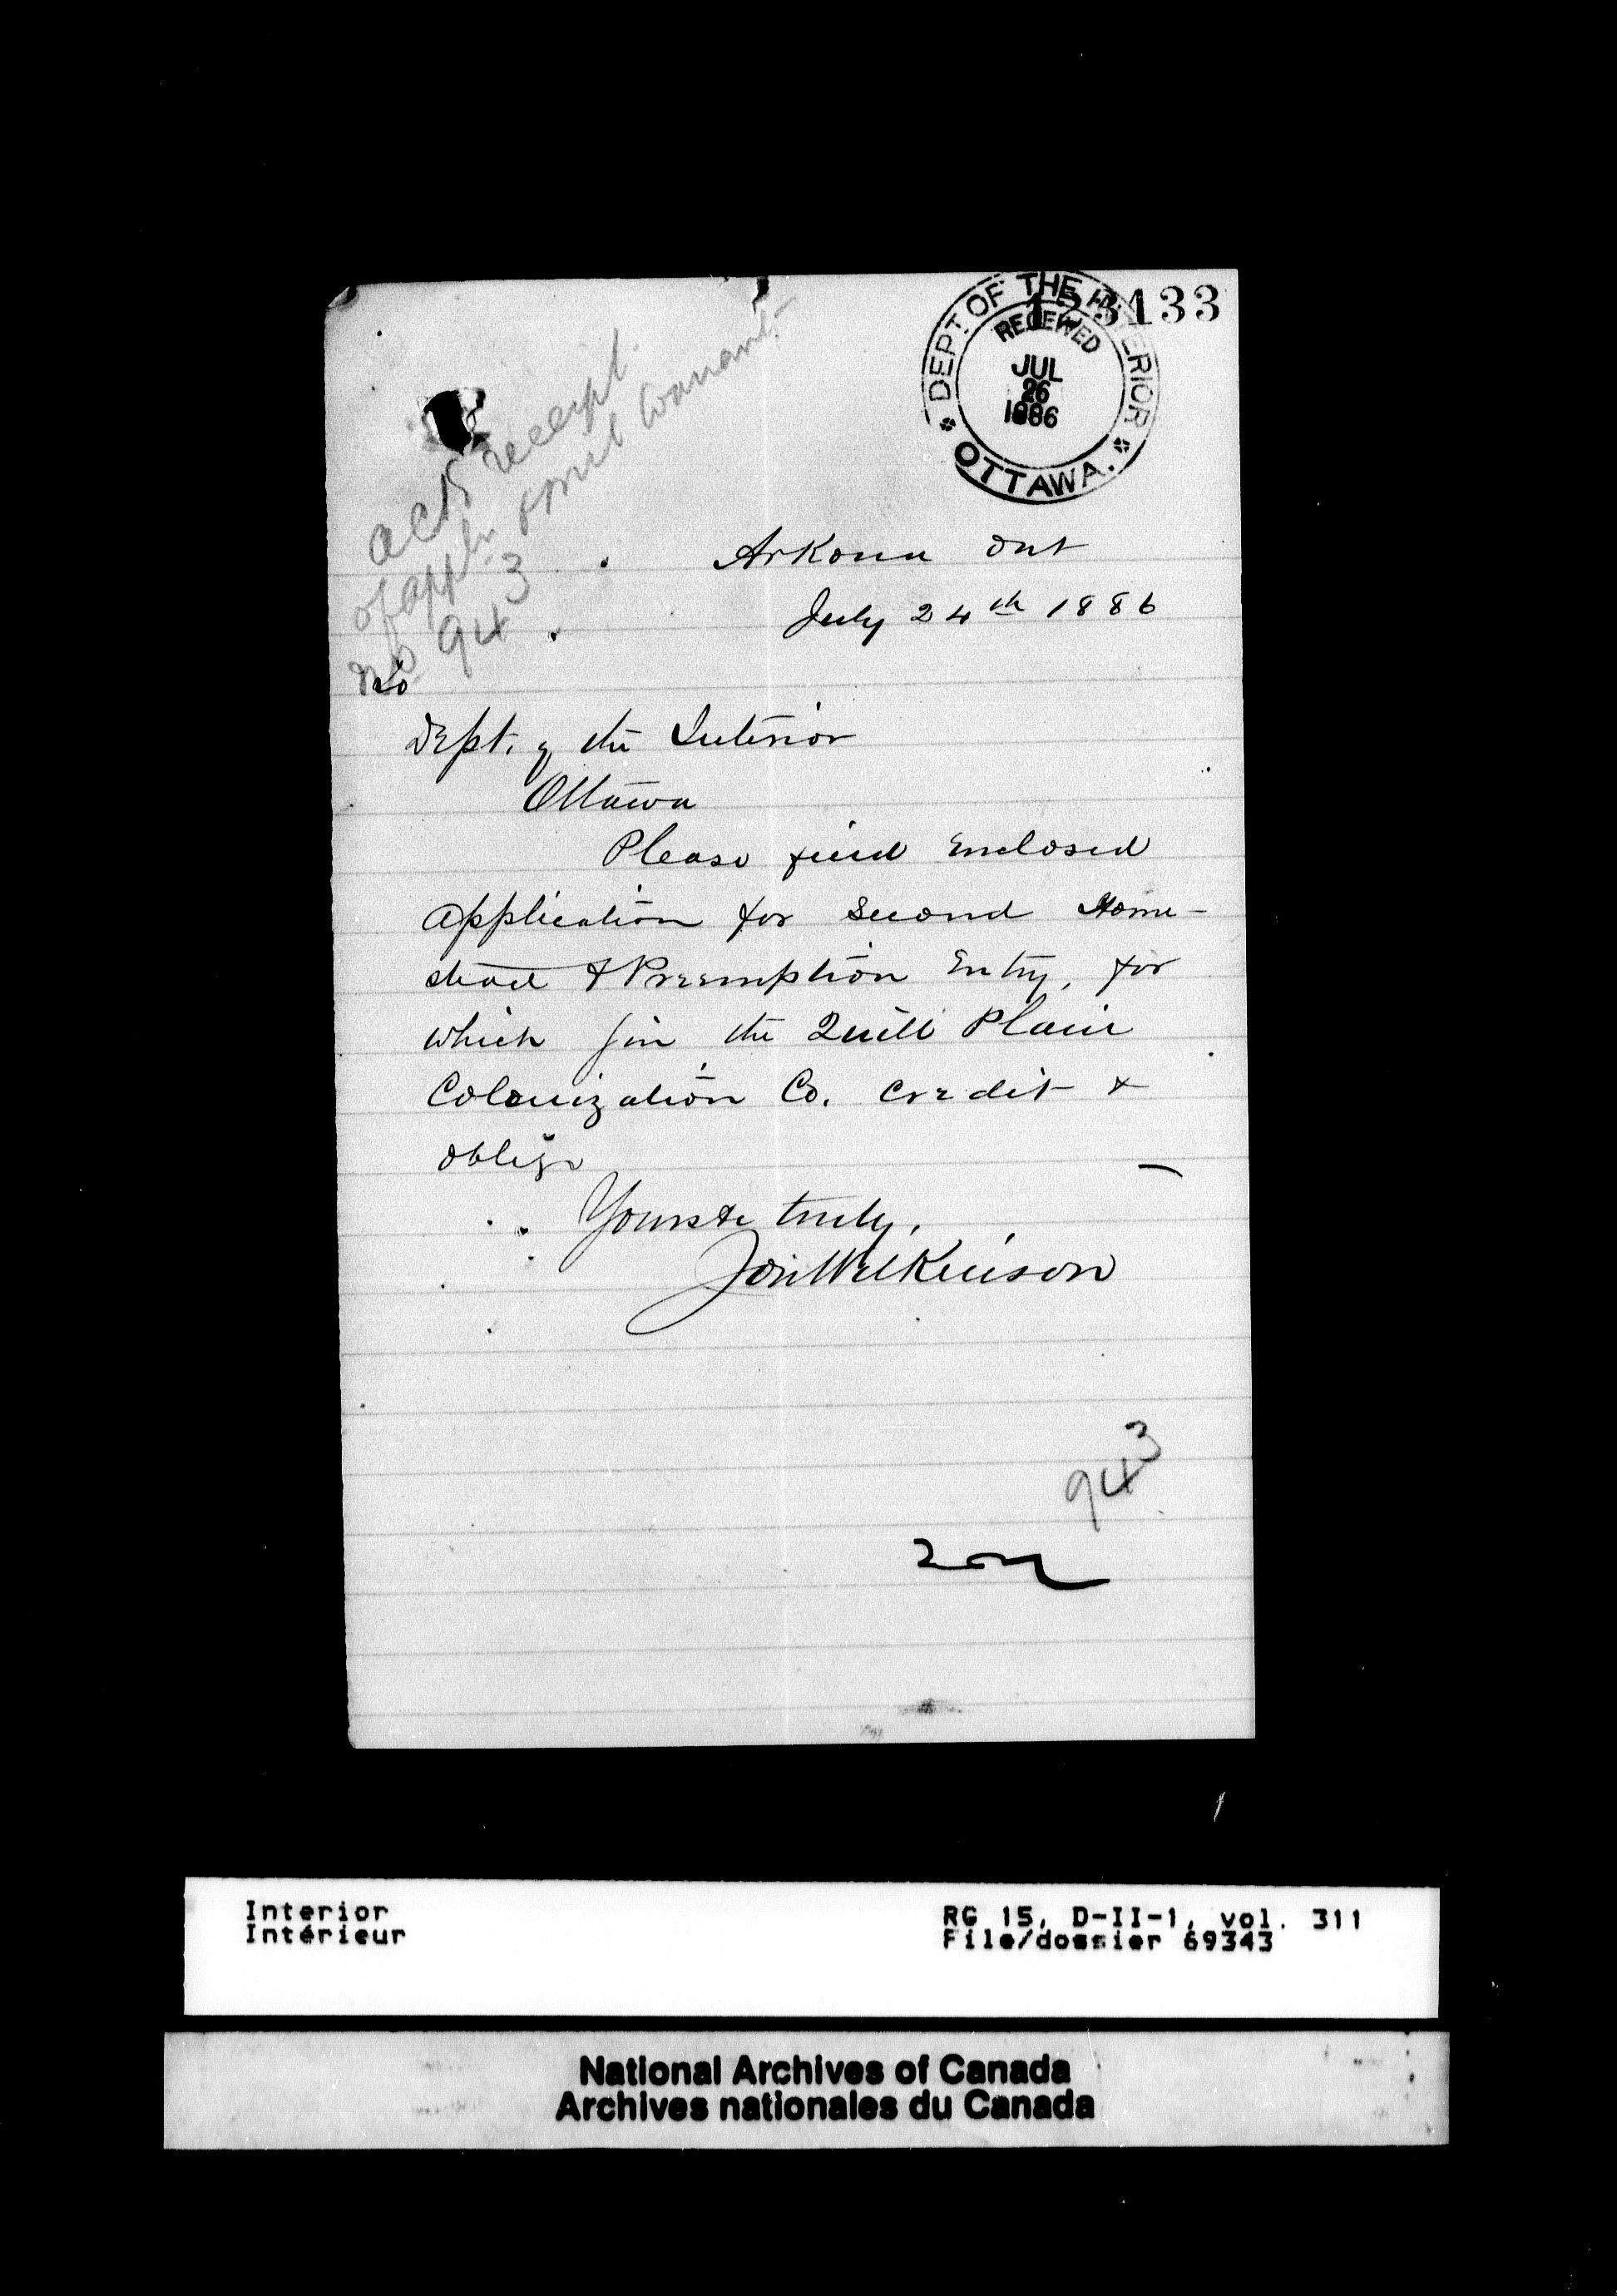 123133
DEPT. OF THE INTERIOR
RECEIVED
JUL
26
1886
OTTAWA.
ack receipt
of appln & mil warrant.
no 943
Arkona Ont
July 24th 1886
To
Dept. of the Interior
Ottawa
Please find Enclosed
application for Second Home-
stead & Preemption Entry, for
which give the Quill Plain
Colonization Co. credit &
oblige
Yours &c truly,
Jon Wilkinson
943
Interior
Intérieur
RG 15, D-II-1, vol. 311
File/dossier 69343
National Archives of Canada
Archives nationales du Canada